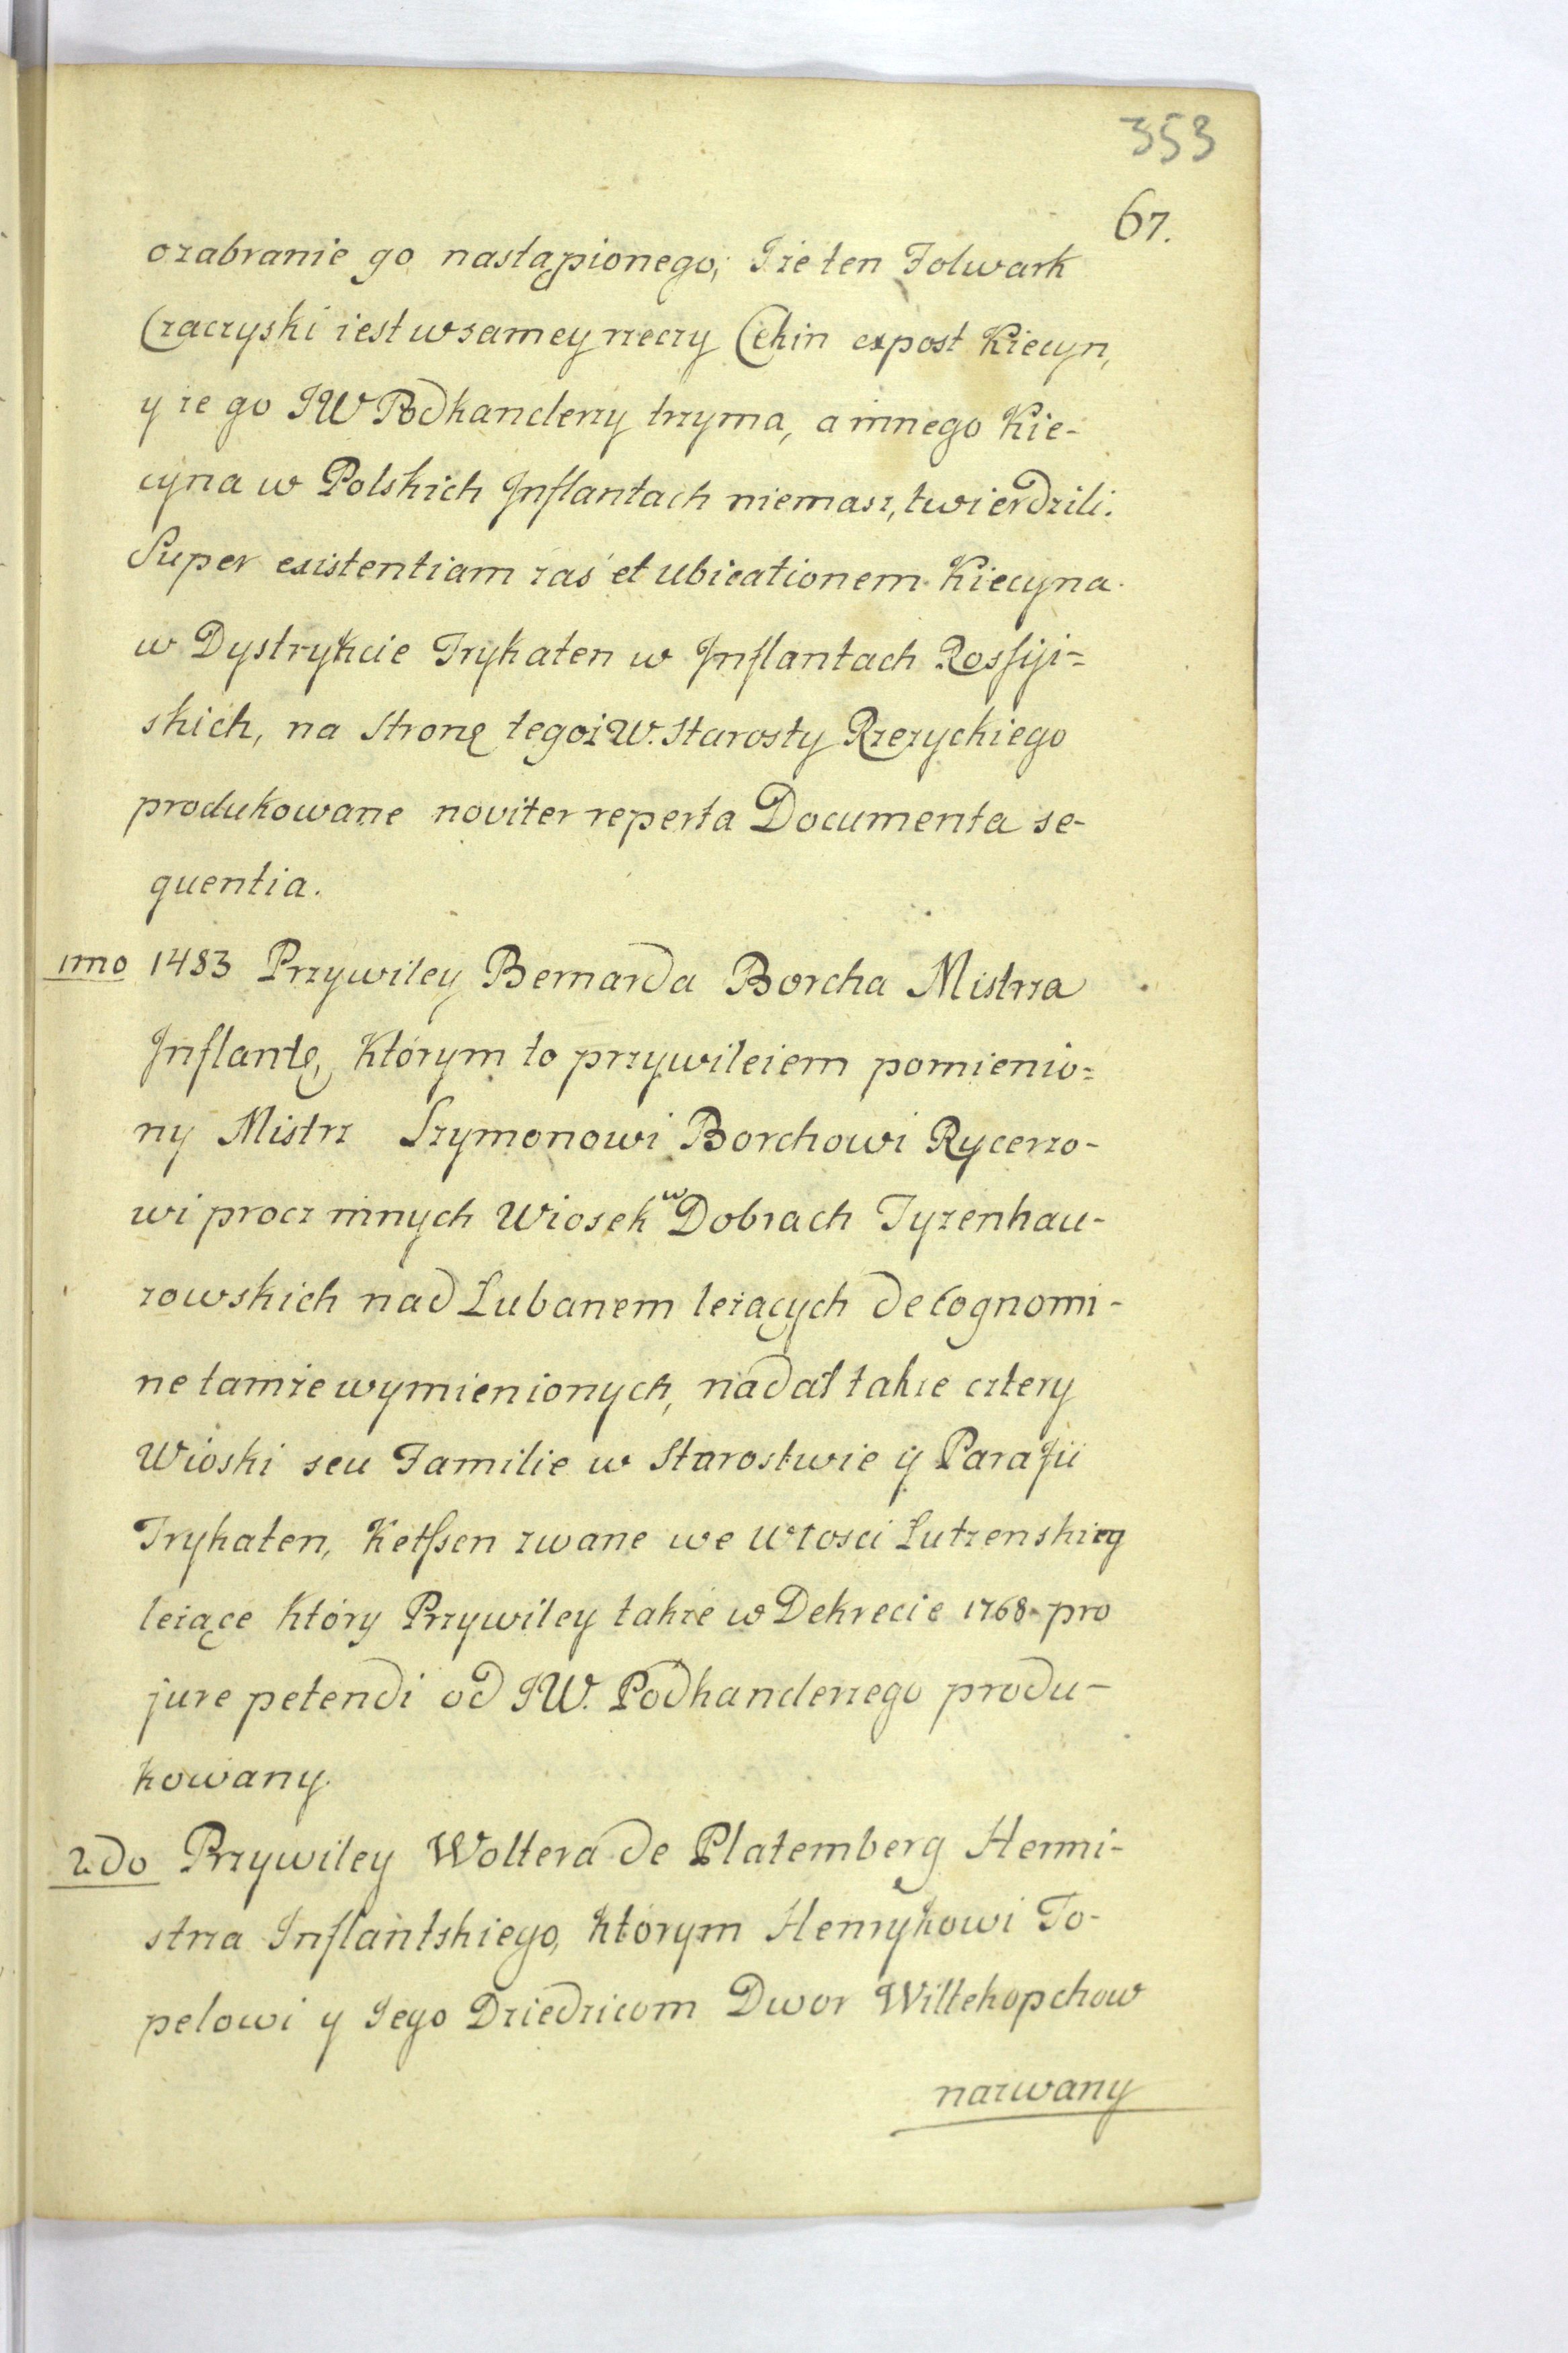 353
67.
o zabranie go nastąpionego; I że ten Folwark
Czaczyski iest w samey rzeczy Cekin expost Kiecyn,
y że go JW Podkanclerzy trzyma, a innego Kie-
cyna w Polskich Inflantach niemasz, twierdzili.
Super existentiam zaś et ubicationem Kiecyna
w Dystrykcie Trykaten w Inflantach Rossyi=
skich, na stronę tegoż W. Starosty Rzezyckiego
produkowane noviter reperta Documenta se-
quentia.
1mo 1483 Przywiley Bernarda Borcha Mistrza
Inflantę, którym to przywileiem pomienio=
ny Mistrz Szymonowi Borchowi Rycerzo-
wi procz innych Wiosek w Dobrach Tyzenhau-
zowskich nad Lubanem leżących de cognomi-
ne tamże wymienionych, nadał także cztery
Wioski seu Familie w Starostwie y Parafii
Trykaten, Ketssen zwane we Włosci Lutzenskiey
leżące który Przywiley także w Dekrecie 1768 pro
jure petendi od JW. Podkanclerzego produ-
kowany.
2do Przywiley Woltera de Platemberg Hermi-
strza Inflantskiego, którym Henrykowi To-
pelowi y Jego Dziedzicom Dwor Wittekopchow
nazwany